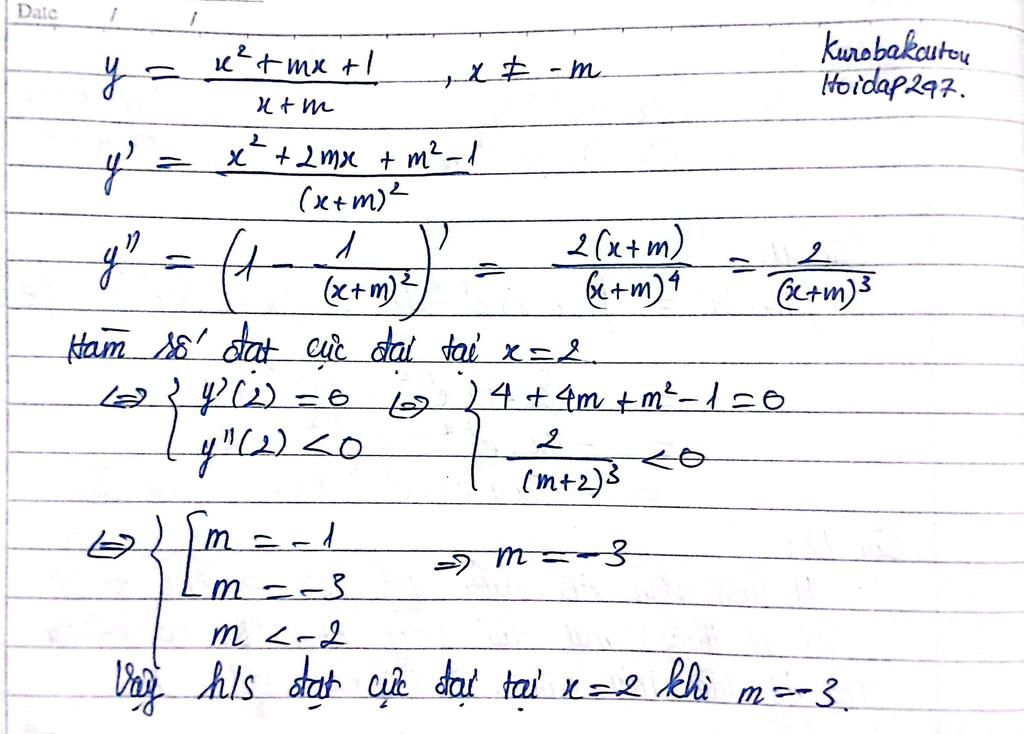 Date / /
y = (x² + mx + 1)/(x + m) , x ≠ -m
Kurobakaitou
Hoidap247.
y' = (x² + 2mx + m² - 1)/(x+m)²
y'' = (1 - 1/(x+m)²)' = 2(x+m)/(x+m)⁴ = 2/(x+m)³
Hàm số đạt cực đại tại x = 2.
⇔ { y'(2) = 0 ⇔ { 4 + 4m + m² - 1 = 0
y''(2) < 0 2/(m+2)³ < 0
⇔ { [ m = -1 ⇒ m = -3
m = -3
m < -2
Vậy h/s đạt cực đại tại x = 2 khi m = -3.